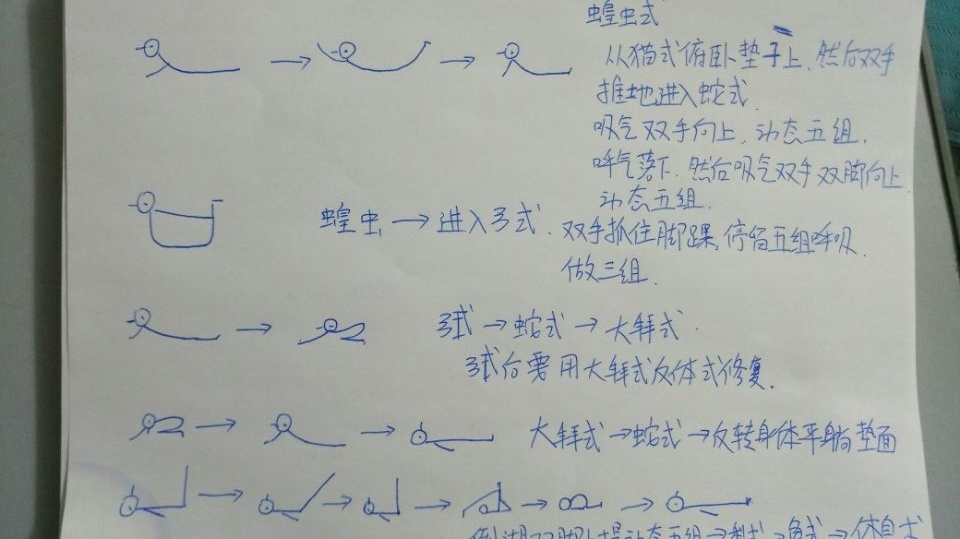 蝗虫式
从猫式俯卧垫子上,然后双手
推地进入蛇式.
吸气双手向上,动态五组.
呼气落下.然后吸气双手双脚向上
动态五组.
蝗虫→进入弓式.双手抓住脚踝,停留五组呼吸.
做三组.
弓式→蛇式→大拜式.
弓式后要用大拜式反体式修复.
大拜式→蛇式→反转身体平躺垫面
双脚上提动态五组→犁式→鱼式→休息术